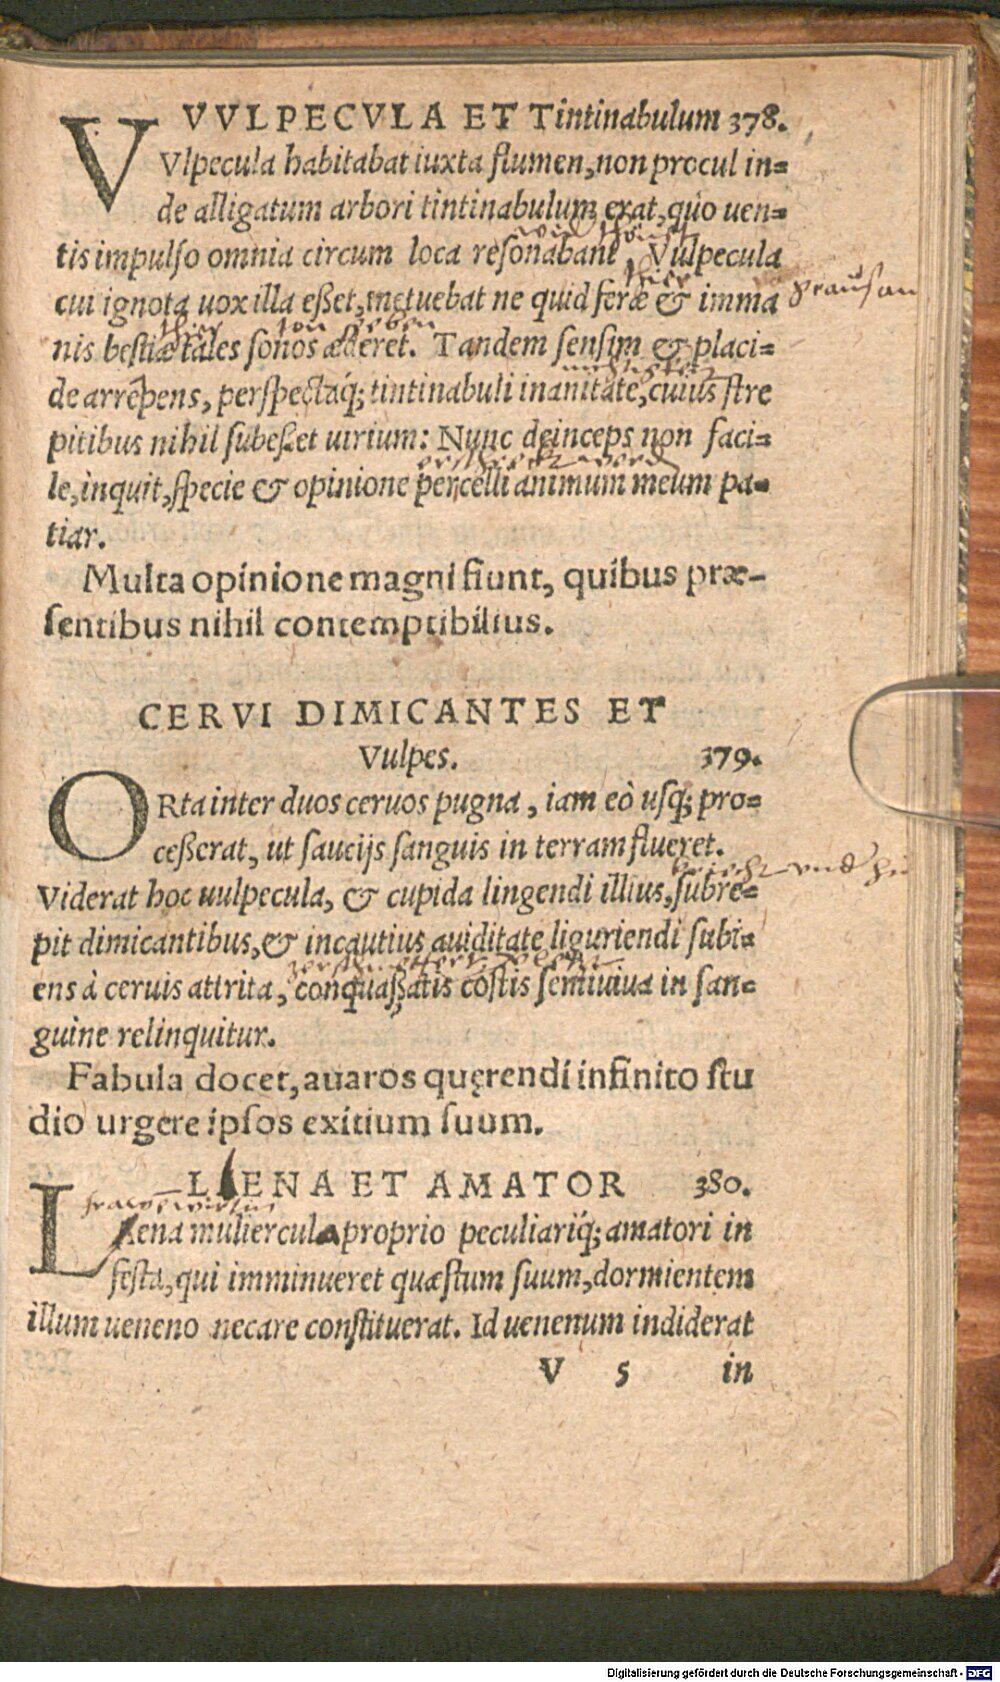 VVLPECVLA ET Tintinabulum 378.
VVlpecula habitabat iuxta flumen, non procul in=
de alligatum arbori tintinabulum erat, quo uen=
tis impulso omnia circum loca resonabant. Vulpecula
cui ignota uox illa eßet, metuebat ne quid feræ & imma
nis bestiæ tales sonos æderet. Tandem sensim & placi=
de arrepens, perspectaq́; tintinabuli inanitate, cuius stre
pitibus nihil subeßet uirium: Nunc deinceps non faci=
le, inquit, specie & opinione percelli animum meum pa=
tiar.
Multa opinione magni fiunt, quibus præ-
sentibus nihil contemptibilius.
CERVI DIMICANTES ET
Vulpes. 379.
ORta inter duos ceruos pugna, iam eò usq; pro=
ceßerat, ut saucijs sanguis in terram flueret.
Viderat hoc uulpecula, & cupida lingendi illius, subre=
pit dimicantibus, & incautius auiditate liguriendi subi=
ens à ceruis attrita, conquaßatis costis semiuiua in san=
guine relinquitur.
Fabula docet, auaros quęrendi infinito stu
dio urgere ipsos exitium suum.
LENA ET AMATOR 380.
Lena muliercula proprio peculiariq́; amatori in
festa, qui imminueret quæstum suum, dormientem
illum ueneno necare constituerat. Id uenenum indiderat
V 5 in
Digitalisierung gefördert durch die Deutsche Forschungsgemeinschaft - DFG